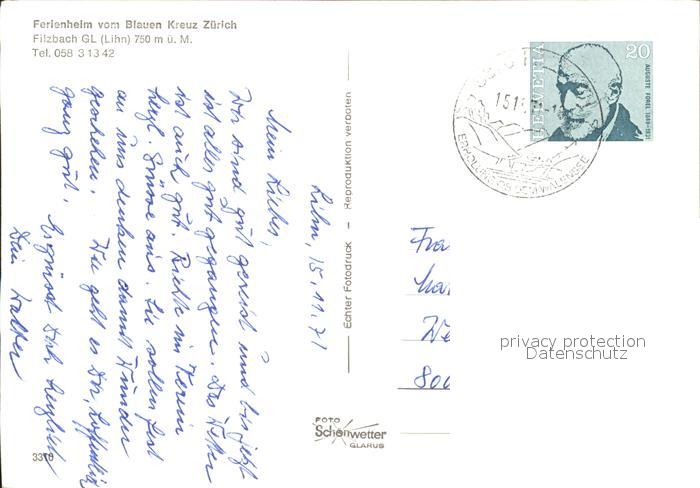 Ferienheim vom Blauen Kreuz Zürich
Filzbach GL (Lihn) 750 m ü. M.
Tel. 058 3 13 42
Lihn, 15.11.71
Mein Liebes,
Wir sind gut gereist und bis jetzt
ist alles gut gegangen. Das Wetter
ist auch gut. Richte im Verein
herzl. Grüsse aus. Sie sollen fest
an uns denken damit Wunder
geschehen. Wie geht es Dir, hoffentlich
ganz gut. Es grüsst Dich herzlich
Dein Walter
3378
Echter Fotodruck – Reproduktion verboten
FOTO
Schönwetter
GLARUS
HELVETIA
20
AUGUSTE FOREL 1848-1931
15.11.71
WALENSEE
Fra
We
800
privacy protection
Datenschutz